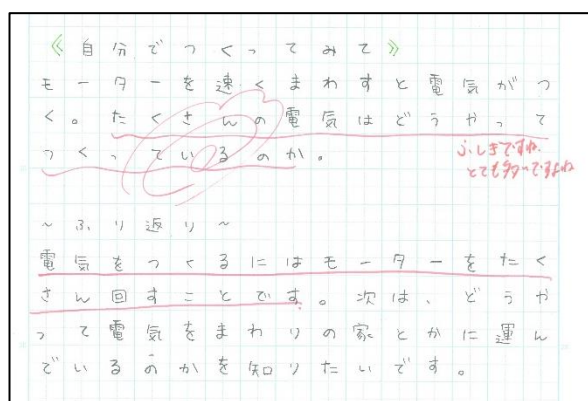 《自分でつくってみて》
モーターを速くまわすと電気がつ
く。たくさんの電気はどうやって
つくっているのか。
ふしぎですね
～ふり返り～
電気をつくるにはモーターをたく
さん回すことです。次は、どうや
って電気をまわりの家とかに運ん
でいるのかを知りたいです。